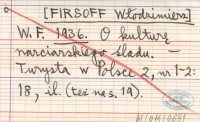 [FIRSOFF Włodzimierz]
W. F. 1936. O kulturę
narciarskiego śladu. —
Turysta w Polsce 2, nr 1-2:
18, il. (też na s. 19).